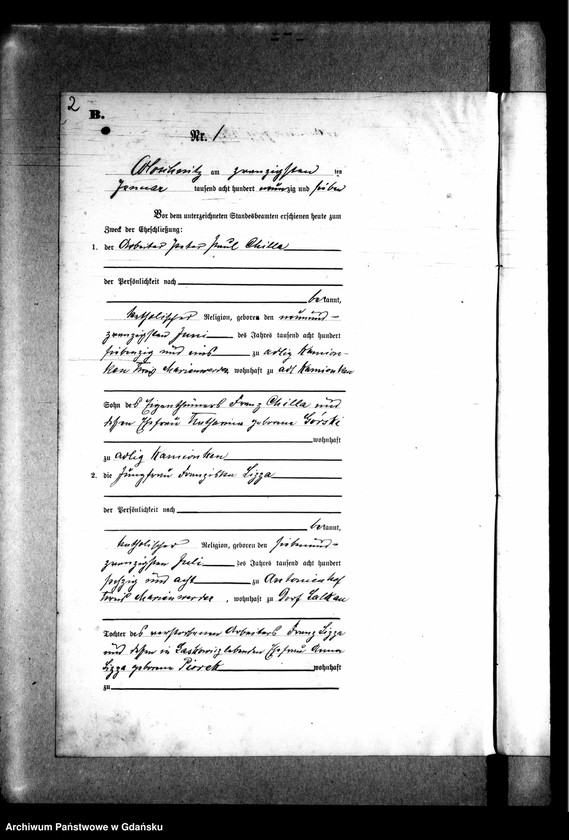 2
B.
Nr. 1
am zwanzigsten ten
Januar tausend acht hundert neunzig und sieben
Vor dem unterzeichneten Standesbeamten erschienen heute zum
Zweck der Eheschließung:
1. der Arbeiter Peter Paul Chilla
der Persönlichkeit nach
bekannt,
katholischer Religion, geboren den neunund-
zwanzigsten Juni des Jahres tausend acht hundert
siebenzig und eins zu adlig Kamion-
ken Kreis Marienwerder wohnhaft zu adl Kamionken
Sohn des Eigenthümers Franz Chilla und
dessen Ehefrau Katharina geborene Górski
wohnhaft
zu adlig Kamionken
2. die Jungfrau Franziska Lizza
der Persönlichkeit nach
bekannt,
katholischer Religion, geboren den siebenund-
zwanzigsten Juli des Jahres tausend acht hundert
sechzig und acht zu Antonienhof
Kreis Marienwerder, wohnhaft zu Dorf Lalkau
Tochter des verstorbenen Arbeiters Franz Lizza
und dessen in Laskowiz lebenden Ehefrau Anna
Lizza geborene Piorek wohnhaft
zu
Archiwum Państwowe w Gdańsku